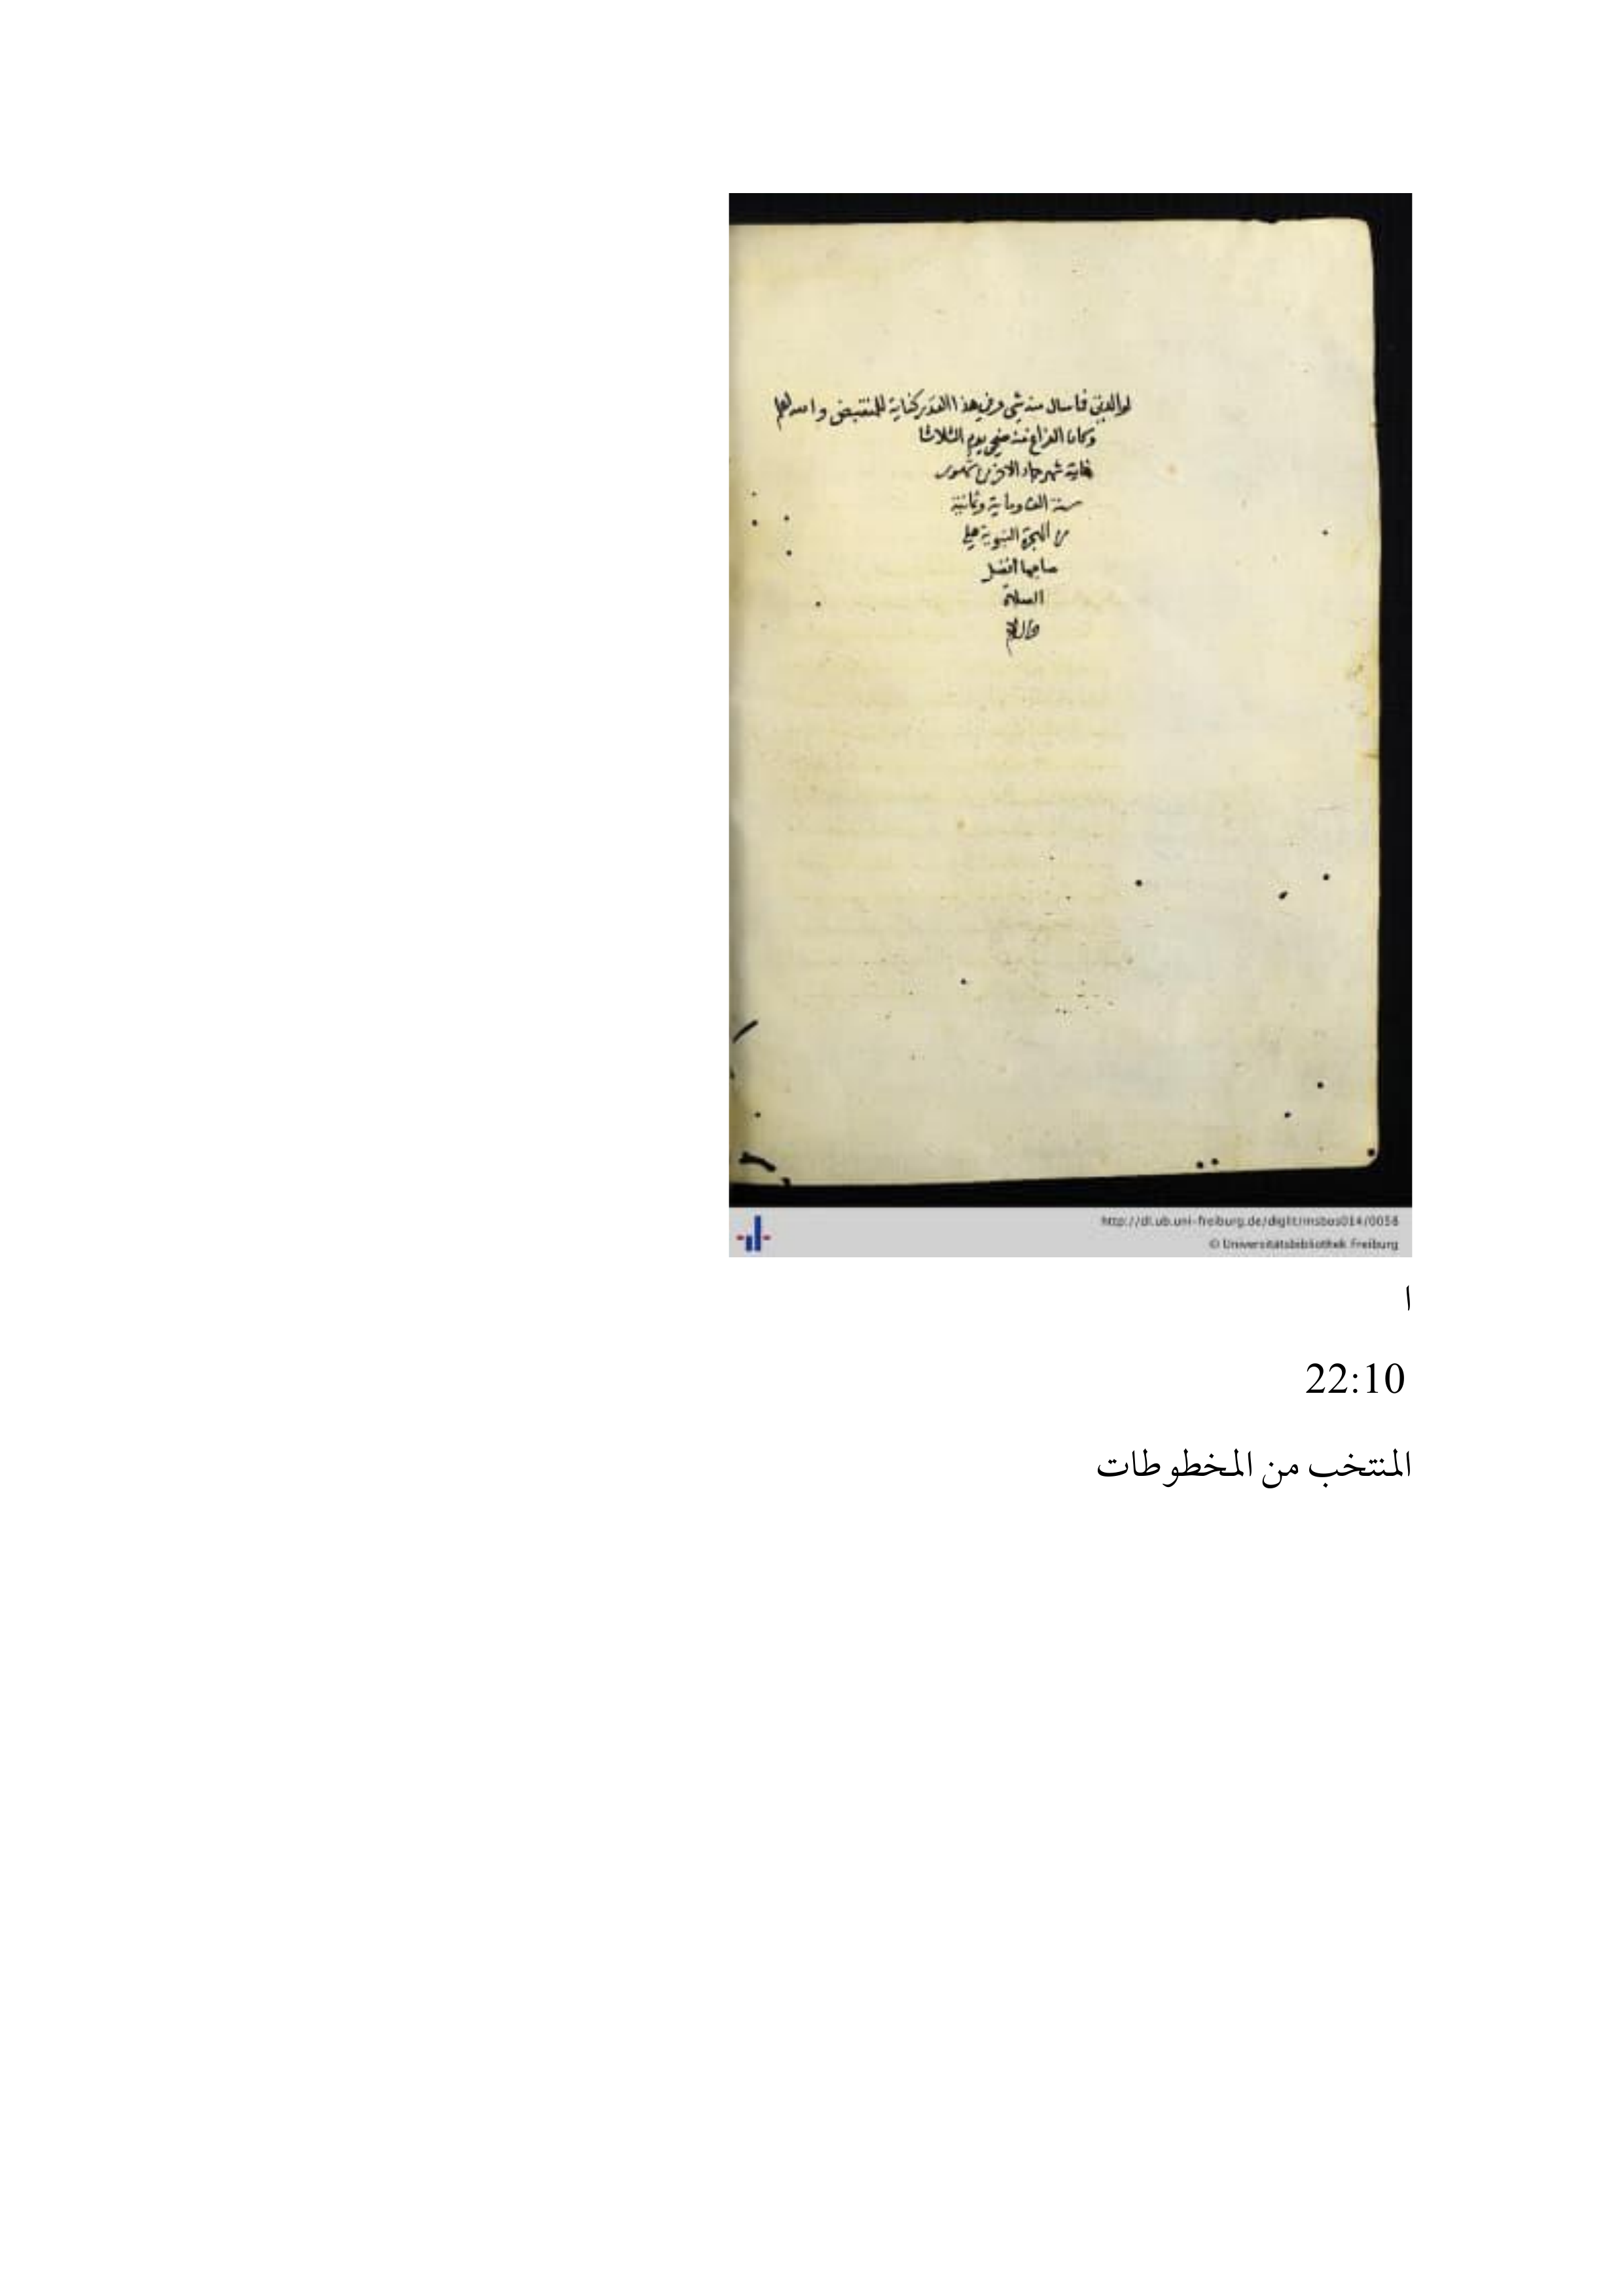 لوالدين فاسال منه شي وفي هذا القدر كفاية للمنقبض والله اعلم
وكان الفراغ منه ضحى يوم الثلاثا
غاية شهر جماد الاخر من شهور
سنة الف ومائة وثمانية
من الهجرة النبوية على
صاحبها افضل
الصلاة
والسلام
http://dl.ub.uni-freiburg.de/diglit/msbos014/0058
© Universitätsbibliothek Freiburg
ا
22:10
المنتخب من المخطوطات